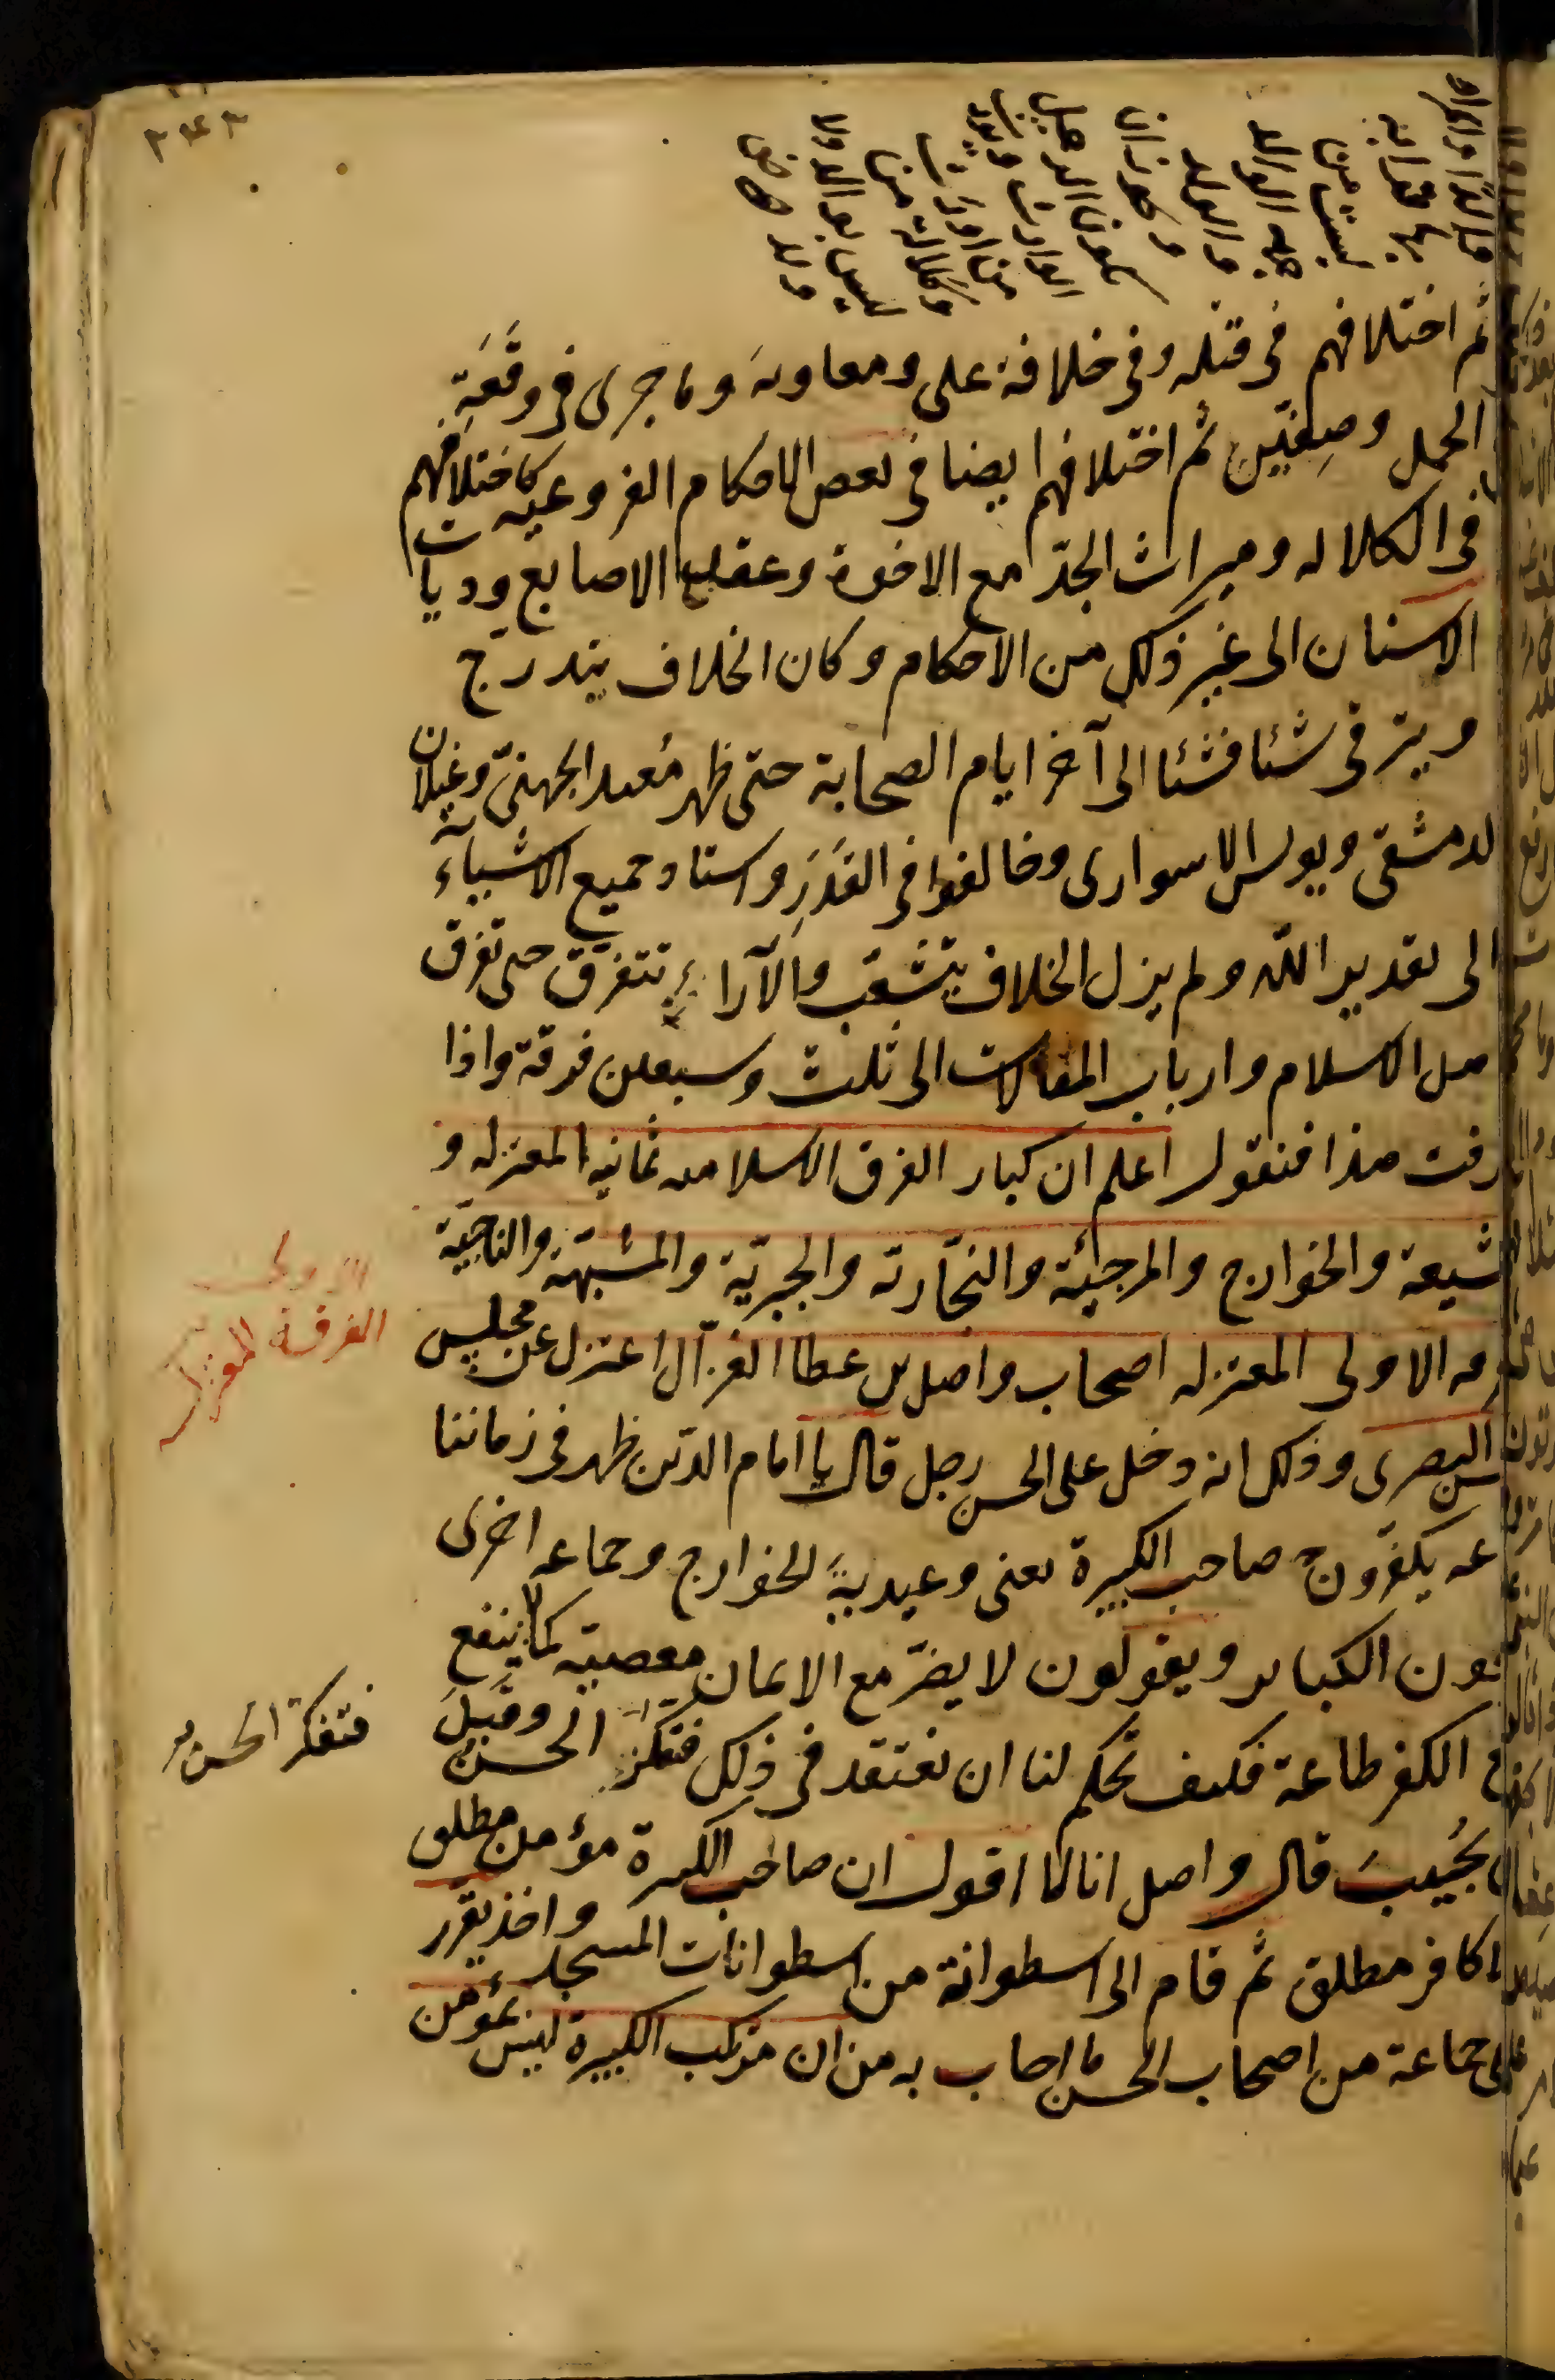 ٣٤٣
ثم اختلافهم فى قتله وفى خلافة على ومعاوية وما جرى فى وقعة
الجمل وصفين ثم اختلافهم ايضا فى بعض الاحكام الفروعية كاختلافهم
فى الكلاله وميراث الجدّ مع الاخوة وعقل الاصابع وديات
الاسنان الى غير ذلك من الاحكام وكان الخلاف يتدرج
ويترقى شئا فشئا الى آخر ايام الصحابة حتى ظهر معبد الجهنى وغيلان
لدمشقى ويونس الاسوارى وخالفوا فى القَدَرِ واسناد جميع الاشياء
الى تقدير الله ولم يزل الخلاف يتشعّب والآراء تتفرّق حتى تفرق
هل الاسلام وارباب المقالات الى ثلث وسبعين فرقة واذا
رفت هذا فنقول اعلم ان كبار الفرق الاسلاميه ثمانيه المعتزله و
شيعة والخوارج والمرجئة والنجّارية والجبريّة والمشبّهة والناجيّة
رقه الاولى المعتزله اصحاب واصل بن عطا الغزّال اعتزل عن مجلس
سن البصرى وذلك انه دخل على الحسن رجل قال يا امام الدّين ظهر فى زماننا
عه يكفّرون صاحب الكبيرة يعنى وعيدية الخوارج وجماعه اخرى
جون الكباير ويقولون لا يضرّ مع الايمان معصية كما لا ينفع
ع الكفر طاعة فكيف تحكم لنا ان نعتقد فى ذلك فتفكّر الحسن وقبلَ
ن يجُيبَ قال واصل انا لا اقول ان صاحب الكبيرة مؤمن مطلق
لا كافر مطلق ثم قام الى اسطوانة من اسطوانات المسجد واخذ يقرر
على جماعة من اصحاب الحسن ما اجاب به من ان مرتكب الكبيرة ليس بمؤمن
الاولى
الفرقة المعتزله
فتفكّر الحسن